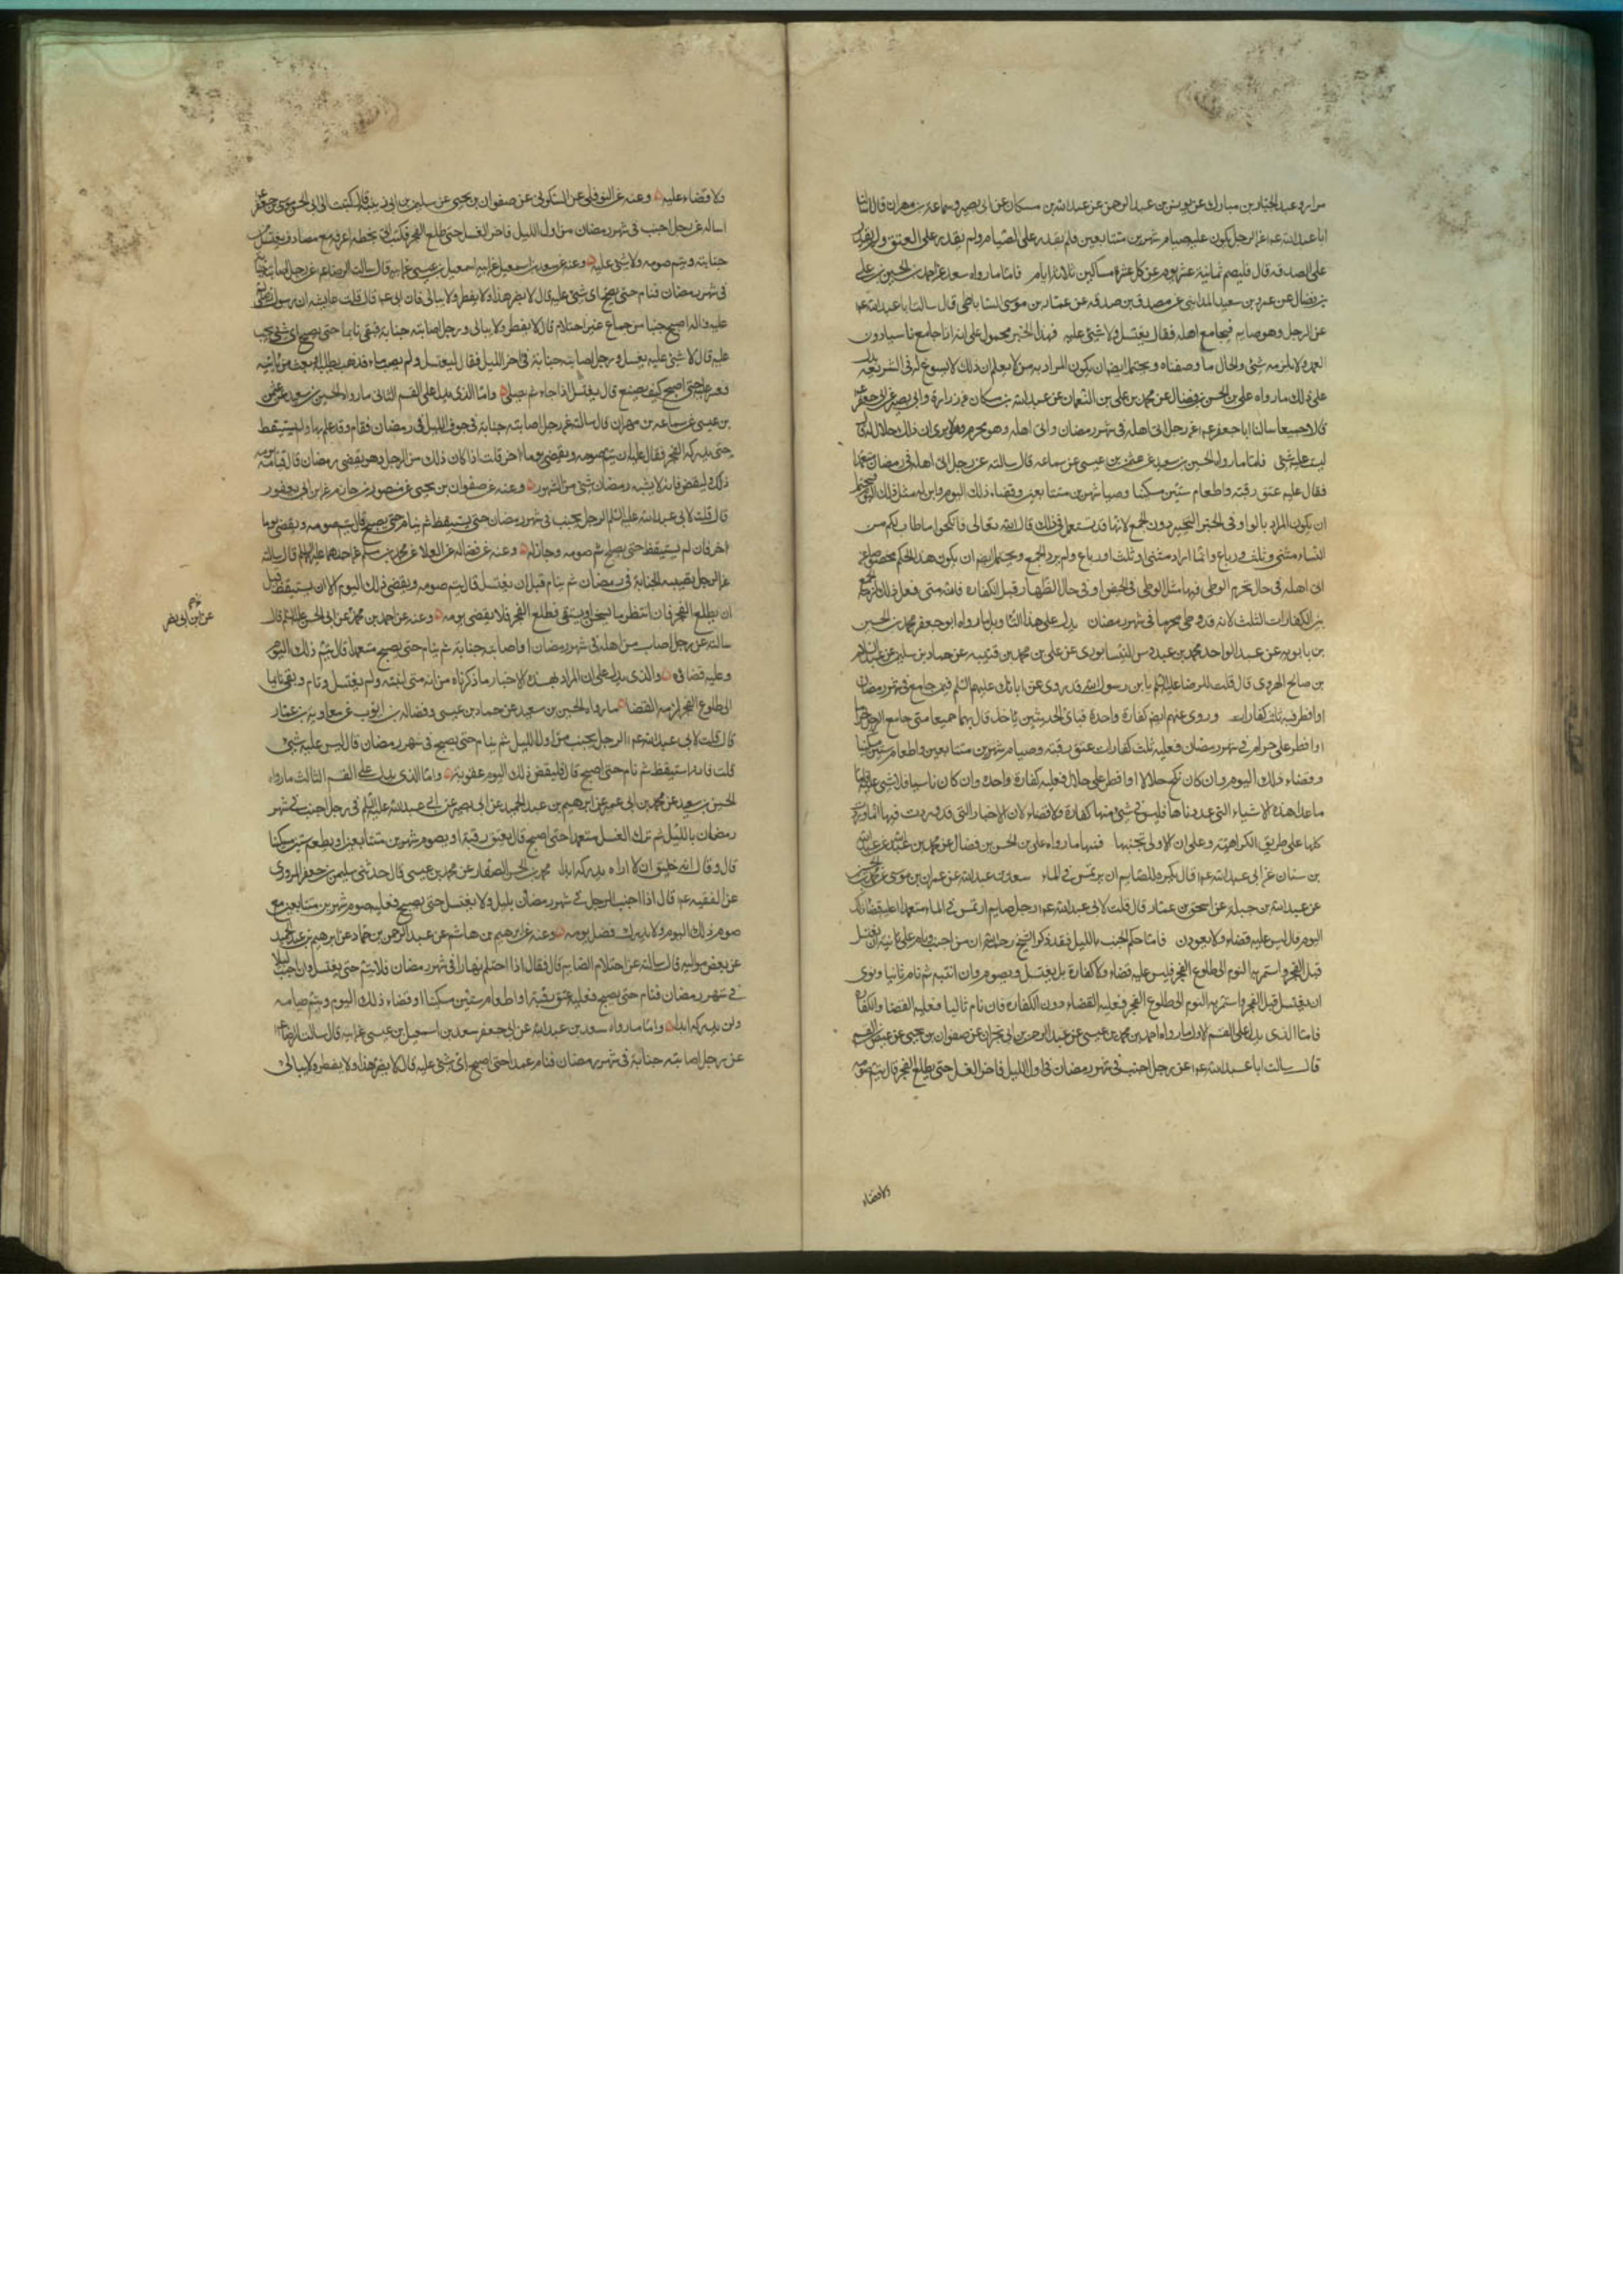 مرار وعبد الجبار بن مبارك عن يونس بن عبد الرحمن عن عبد الله بن مسكان عن ابى بصير وسماعة بن مهران قال سالنا
ابا عبد الله ع عن الرجل يكون عليه صيام شهرين متتابعين فلم يقدر على الصيام ولم يقدر على العتق ولم يقدر
على الصدقه قال فليصم ثمانية عشر يوما عن كل عشرة مساكين ثلاثة ايام فامّا ما رواه سعد عن احمد بن الحسن بن على
بن فضال عن عمرو بن سعيد المداينى عن مصدق بن صدقه عن عمّار بن موسى الساباطى قال سالت ابا عبد الله ع
عن الرجل وهو صايم فيجامع اهله فقال يغتسل ولا شئ عليه فهذا الخبر محمول على انه اذا جامع ناسيا دون
العمد ولا يلزمه شئ والحال ما وصفناه ويحتمل ايضا ان يكون المراد به من لا يعلم ان ذلك لا يسوغ له فى الشريعة يدل
على ذلك ما رواه على بن الحسن بن فضال عن محمد بن على بن النعمان عن عبد الله بن مسكان عن زرارة وابى بصير عن ابى جعفر
قالا جميعا سالنا ابا جعفر ع عن رجل اتى اهله فى شهر رمضان واتى اهله وهو محرم وهو لا يرى ان ذلك حلال له قال
ليس عليه شئ فامّا ما رواه الحسين بن سعيد عن عثمن بن عيسى عن سماعه قال سالته عن رجل اتى اهله فى رمضان متعمدا
فقال عليه عتق رقبة واطعام ستّين مسكينا وصيام شهرين متتابعين وقضاء ذلك اليوم واين له مثل ذلك اليوم فيحتمل
ان يكون المراد بالواو فى الخبر التخيير دون الجمع لانها قد يستعمل فى ذلك قال الله تعالى فانكحوا ما طاب لكم من
النساء مثنى وثلث ورباع وانّما اراد مثنى او ثلث او رباع ولم يرد الجمع ويحتمل ايضا ان يكون هذا الحكم مخصوصا بمن
اتى اهله فى حال يحرم الوطى فيها مثل الوطى فى الحيض او فى حال الظهار قبل الكفارة فانه متى فعل ذلك لزمه الجمع
بين الكفارات الثلث لانه قد وطى محرما فى شهر رمضان يدل على هذا التأويل ما رواه ابو جعفر محمد بن على بن الحسين
بن بابويه عن عبد الواحد بن محمد بن عبدوس النيسابورى عن على بن محمد بن قتيبه عن حمدان بن سليمن عن عبد السلام
بن صالح الهروى قال قلت للرضا عليه السلم يا بن رسول الله قد روى عن ابائك عليهم السلم فيمن جامع فى شهر رمضان
او افطر فيه ثلث كفارات وروى عنهم ايضا كفارة واحدة فباى الحديثين ناخذ قال بهما جميعا متى جامع الرجل حراما
او افطر على حرام فى شهر رمضان فعليه ثلث كفارات عتق رقبة وصيام شهرين متتابعين واطعام ستين مسكينا
وقضاء ذلك اليوم وان كان نكح حلالا او افطر على حلال فعليه كفارة واحدة وان كان ناسيا فلا شئ عليه فامّا
ما عدا هذه الاشياء التى عددناها فليس فى شئ منها كفارة ولا قضاء لان الاخبار التى قد وردت فيها انّما وردت
كلها على طريق الكراهية وعلى ان الاولى تجنبها فمنها ما رواه على بن الحسن بن فضال عن محمد بن عبد الله عن عبد الله
بن سنان عن ابى عبد الله ع قال يكره للصايم ان يرتمس فى الماء سعد بن عبد الله عن عمران بن موسى عن محمد بن الحسين
عن عبد الله بن جبلة عن اسحق بن عمّار قال قلت لابى عبد الله ع رجل صايم ارتمس فى الماء متعمدا عليه قضاء ذلك
اليوم قال ليس عليه قضاء ولا يعودن فامّا حكم الجنب بالليل فقد ذكر الشيخ رحمه الله ان من اجنب ونام على نية ان يغتسل
قبل الفجر واستمر به النوم الى طلوع الفجر فليس عليه قضاء ولا كفارة بل يغتسل ويصوم وان انتبه ثم نام ثانيا ونوى
ان يغتسل قبل الفجر واستمر به النوم الى طلوع الفجر فعليه القضاء دون الكفارة فان نام ثالثا فعليه القضا والكفارة
فامّا الذى يدل على القسم الاول ما رواه احمد بن محمد بن عيسى عن عبد الرحمن بن ابى نجران عن صفوان بن يحيى عن عيص بن القسم
قال سالت ابا عبد الله ع عن رجل اجنب فى شهر رمضان فى اول الليل فاخر الغسل حتى يطلع الفجر قال يتم صومه
ولا قضاء
ولا قضاء عليه وعنه عن النوفلى عن السكونى عن صفوان بن يحيى عن سليمن بن ابى زينبه قال كتبت الى ابى الحسن موسى بن جعفر ع
اساله عن رجل اجنب فى شهر رمضان من اول الليل فاخر الغسل حتى طلع الفجر فكتب الى بخطه اعرفه مع مصادف يغتسل من
جنابته ويتم صومه ولا شئ عليه وعنه عن سعد بن اسمعيل عن ابيه اسمعيل بن عيسى قال سالت الرضا ع عن رجل اصابته جنابة
فى شهر رمضان فنام حتى يصبح اى شئ عليه قال لا يضره هذا ولا يفطر ولا يبالى فان ابى ع قال قالت عايشه ان رسول الله صلى الله
عليه واله اصبح جنبا من جماع غير احتلام قال لا يفطر ولا يبالى ورجل اصابته جنابة فبقى نايما حتى يصبح اى شئ يجب
عليه قال لا شئ عليه يغتسل ورجل اصابته جنابة فى اخر الليل فقام ليغتسل ولم يصب ماء فذهب يطلبه او بعث من ياتيه
فعسر عليه حتى اصبح كيف يصنع قال يغتسل اذا جاءه ثم يصلى وامّا الذى يدل على القسم الثانى ما رواه الحسين بن سعيد عن عثمن
بن عيسى عن سماعه بن مهران قال سالته عن رجل اصابته جنابة فى جوف الليل فى رمضان فنام وقد علم بها ولم يستيقظ
حتى يدركه الفجر فقال عليه ان يتم صومه ويقضى يوما اخر قلت اذا كان ذلك من الرجل وهو يقضى رمضان قال فليأكل يومه
ذلك وليقض فانه لا يشبه رمضان شئ من الشهور وعنه عن صفوان بن يحيى عن منصور بن حازم عن ابن ابى يعفور
قال قلت لابى عبد الله عليه السلم الرجل يجنب فى شهر رمضان حتى يستيقظ ثم ينام حتى يصبح قال يتم صومه ويقضى يوما
اخر فان لم يستيقظ حتى يصبح اتم صومه وجاز له وعنه عن فضاله عن العلاء عن محمد بن مسلم عن احدهما عليهما السلم قال سالته
عن الرجل تصيبه الجنابة فى رمضان ثم ينام قبل ان يغتسل قال يتم صومه ويقضى ذلك اليوم الا ان يستيقظ قبل
ان يطلع الفجر فان انتظر ماء يسخن او يستقى فطلع الفجر فلا يقضى يومه وعنه عن احمد بن محمد عن ابى الحسن عليه السلم قال
سالته عن رجل اصاب من اهله فى شهر رمضان او اصابته جنابة ثم ينام حتى يصبح متعمدا قال يتم ذلك اليوم
وعليه قضاؤه والذى يدل على ان المراد بهذه الاخبار ما ذكرناه من انه متى انتبه ولم يغتسل ونام وبقى نايما
الى طلوع الفجر لزمه القضا ما رواه الحسين بن سعيد عن حماد بن عيسى وفضاله بن ايوب عن معاويه بن عمّار
قال قلت لابى عبد الله ع الرجل يجنب من اول الليل ثم ينام حتى يصبح فى شهر رمضان قال ليس عليه شئ
قلت فانه استيقظ ثم نام حتى اصبح قال فليقض ذلك اليوم عقوبة وامّا الذى يدل على القسم الثالث ما رواه
الحسين بن سعيد عن محمد بن ابى عمير عن ابرهيم بن عبد الحميد عن ابى بصير عن ابى عبد الله عليه السلم فى رجل اجنب فى شهر
رمضان بالليل ثم ترك الغسل متعمدا حتى اصبح قال يعتق رقبة او يصوم شهرين متتابعين او يطعم ستين مسكينا
قال وقال انه خليق ان لا اراه يدركه ابدا محمد بن الحسن الصفار عن محمد بن عيسى قال حدثنى سليمن بن جعفر المروزى
عن الفقيه ع قال اذا اجنب الرجل فى شهر رمضان بليل ولا يغتسل حتى يصبح فعليه صوم شهرين متتابعين مع
صوم ذلك اليوم ولا يدرك فضل يومه وعنه عن ابرهيم بن هاشم عن عبد الرحمن بن حمّاد عن ابرهيم بن عبد الحميد
عن بعض مواليه قال سالته عن احتلام الصايم قال فقال اذا احتلم نهارا فى شهر رمضان فلا ينم حتى يغتسل وان اجنب ليلا
فى شهر رمضان فنام حتى يصبح فعليه عتق رقبة او اطعام ستّين مسكينا وقضاء ذلك اليوم ويتم صيامه
ولن يدركه ابدا وامّا ما رواه سعد بن عبد الله عن ابى جعفر سعد بن اسمعيل بن عيسى عن ابيه قال سالت الرضا ع
عن رجل اصابته جنابة فى شهر رمضان فنام عمدا حتى اصبح اى شئ عليه قال لا يضره هذا ولا يفطر ولا يبالى
عن ابن ابى نصر